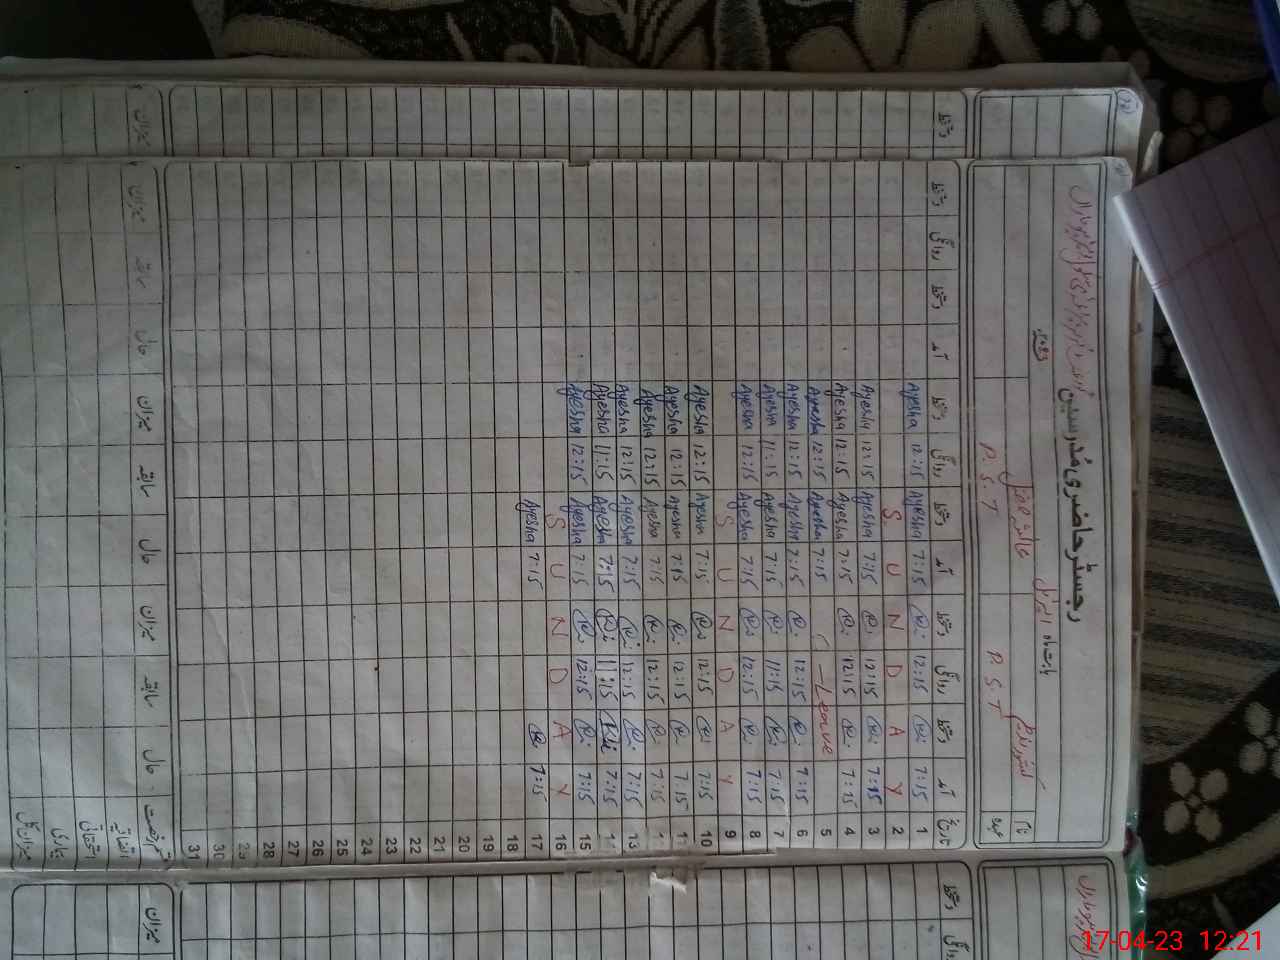 رجسٹر حاضری مدرسین
بابت ماہ اپریل
نام
عہدہ
P.S.T
P.S.T
تاریخ آمد دستخط روانگی دستخط آمد دستخط روانگی دستخط آمد دستخط روانگی دستخط
1 7:15 12:15 7:15 Ayesha 12:15 Ayesha
2 SUNDAY
3 7:15 12:15 7:15 Ayesha 12:15 Ayesha
4 7:15 12:15 7:15 Ayesha 12:15 Ayesha
5 Leave 7:15 Ayesha 12:15 Ayesha
6 7:15 12:15 7:15 Ayesha 12:15 Ayesha
7 7:15 11:15 7:15 Ayesha 11:15 Ayesha
8 7:15 12:15 7:15 Ayesha 12:15 Ayesha
9 SUNDAY
10 7:15 12:15 7:15 Ayesha 12:15 Ayesha
11 7:15 12:15 7:15 Ayesha 12:15 Ayesha
7:15 12:15 7:15 Ayesha 12:15 Ayesha
13 7:15 12:15 7:15 Ayesha 12:15 Ayesha
7:15 11:15 7:15 Ayesha 11:15 Ayesha
15 7:15 12:15 7:15 Ayesha 12:15 Ayesha
16 SUNDAY
17 7:15 7:15 Ayesha
18
19
20
21
22
23
24
25
26
27
28
29
30
31
قسم رخصت حال سابقہ میزان حال سابقہ میزان حال سابقہ میزان
اتفاقیہ
استحقاقی
بیماری
میزان کل
17-04-23 12:21